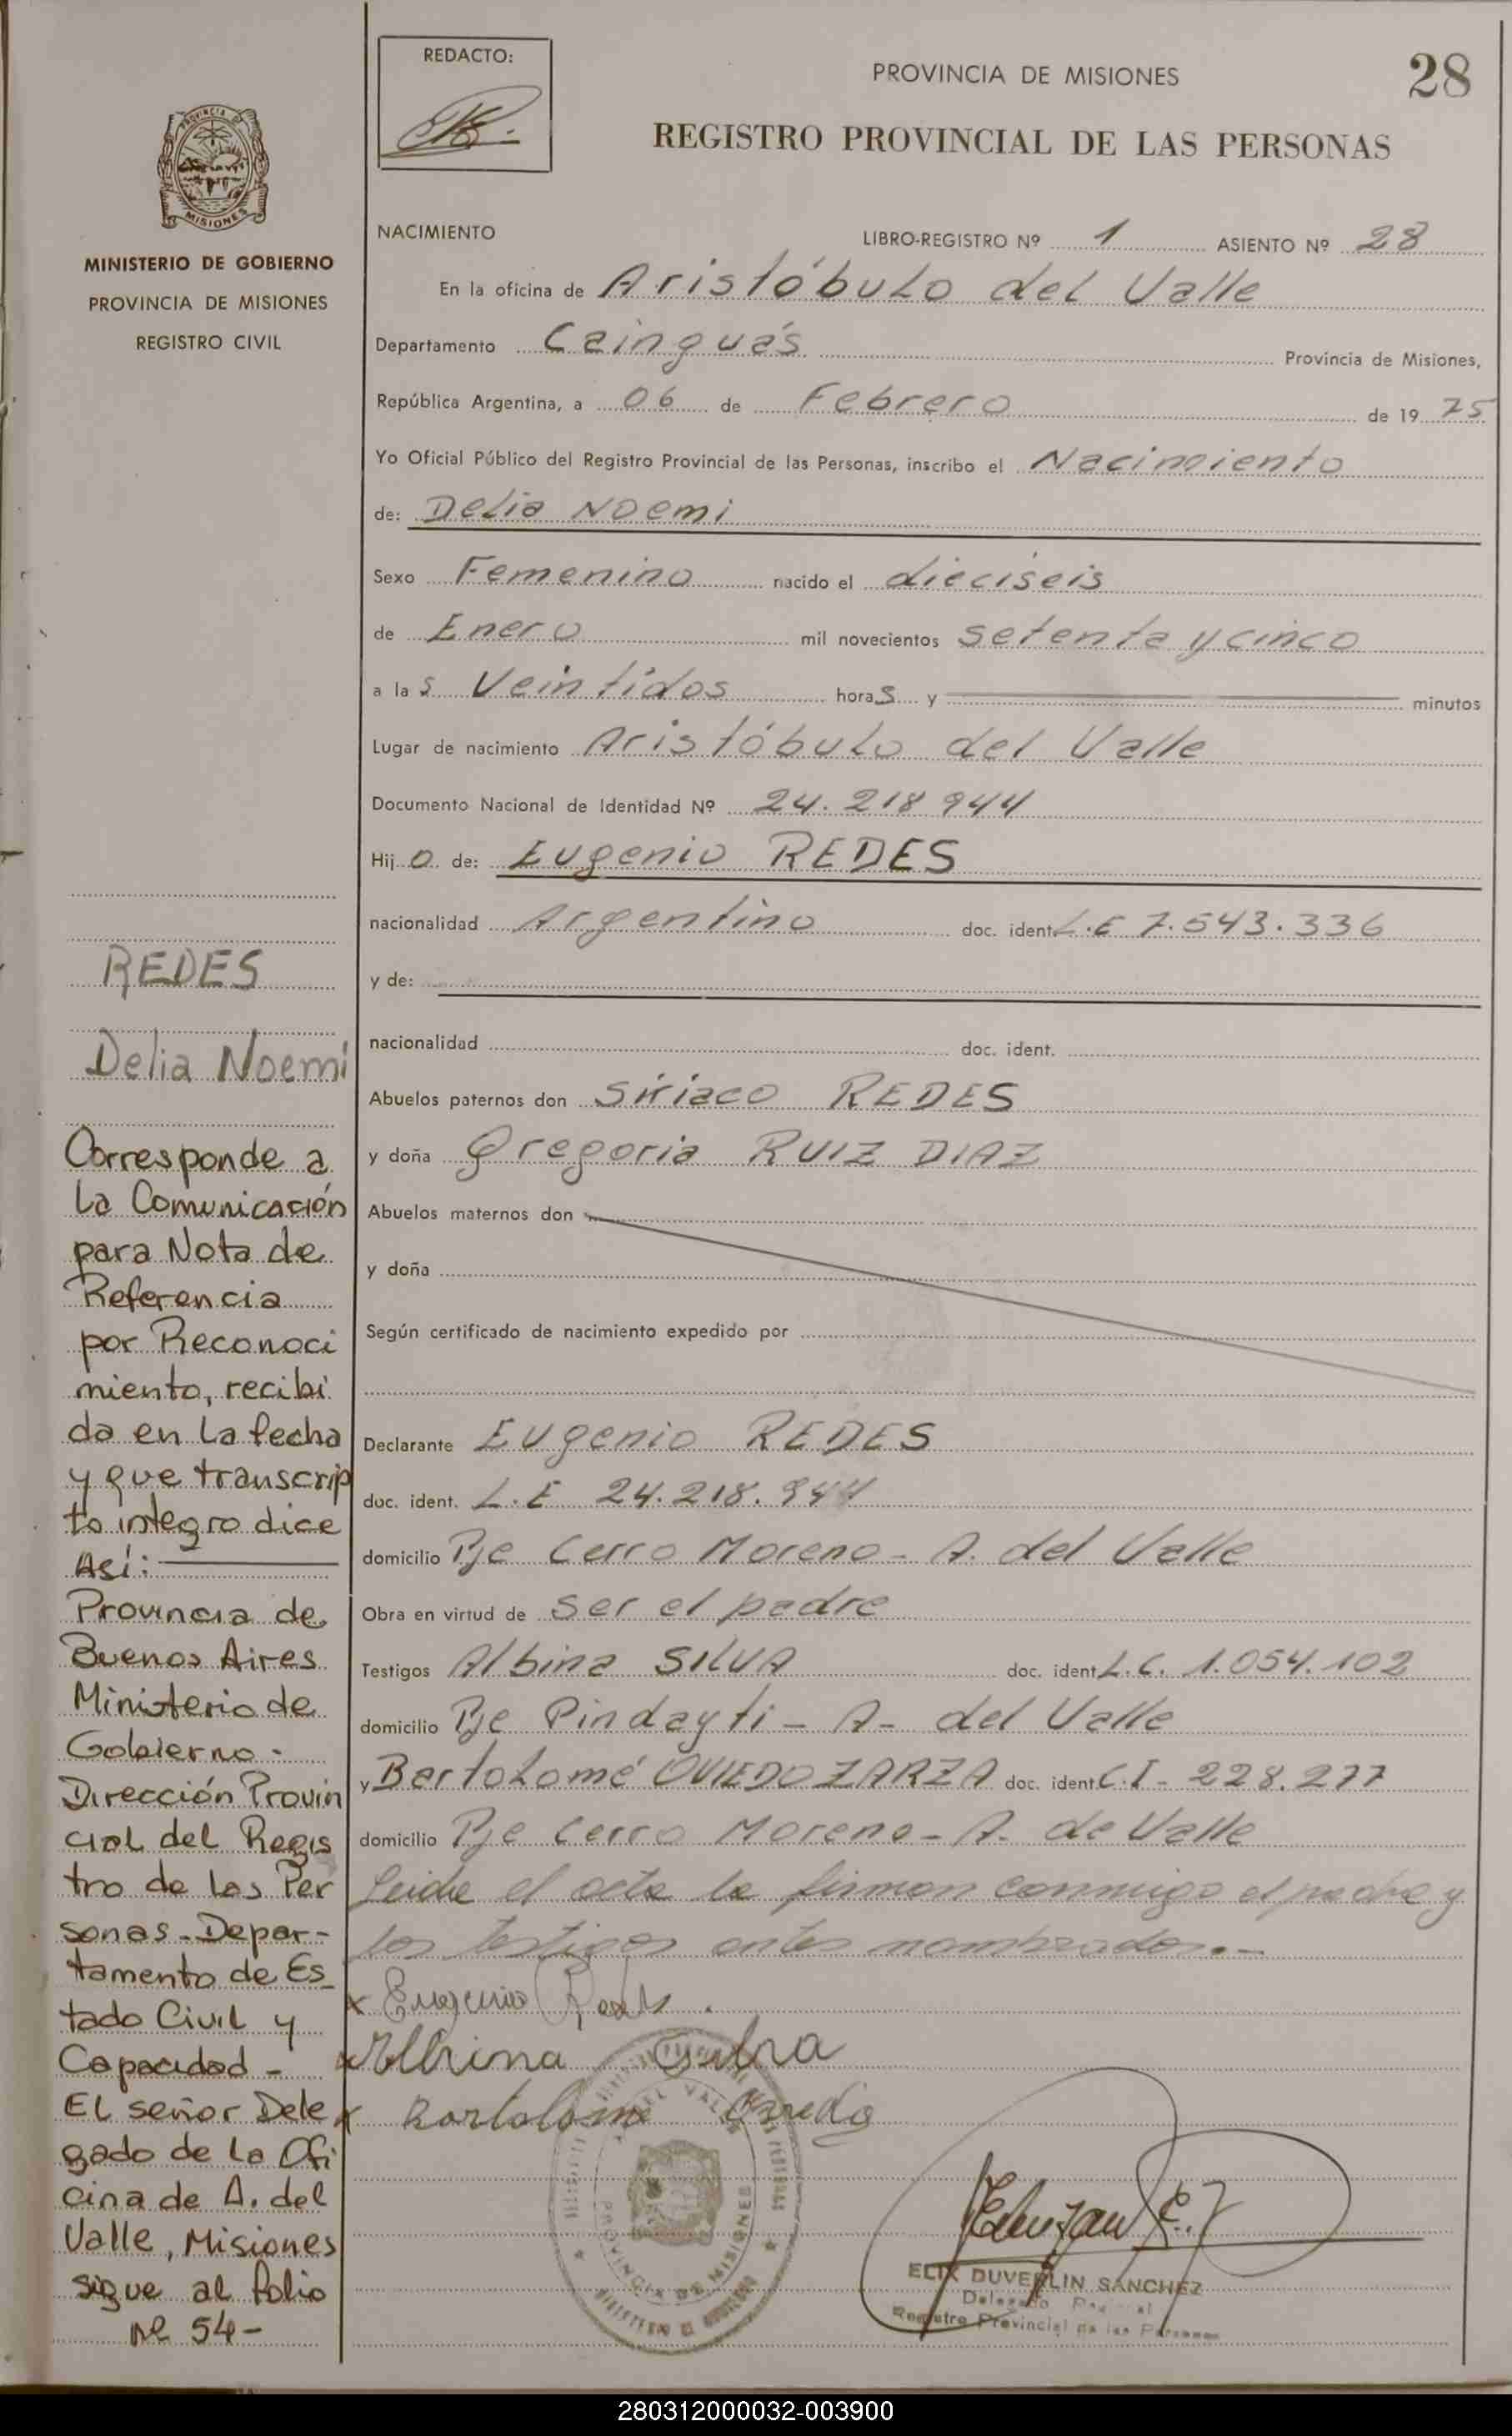 REDACTO:
PROVINCIA DE MISIONES
28
REGISTRO PROVINCIAL DE LAS PERSONAS
MISIONES
MINISTERIO DE GOBIERNO
PROVINCIA DE MISIONES
REGISTRO CIVIL
NACIMIENTO
LIBRO-REGISTRO Nº 1 ASIENTO Nº 28
En la oficina de Aristóbulo del Valle
Departamento Cainguás Provincia de Misiones,
República Argentina, a 06 de Febrero de 1975
Yo Oficial Público del Registro Provincial de las Personas, inscribo el Nacimiento
de: Delia Noemi
Sexo Femenino nacido el dieciseis
de Enero mil novecientos setenta y cinco
a las Veintidos horas y minutos
Lugar de nacimiento Aristóbulo del Valle
Documento Nacional de Identidad Nº 24.218 944
Hijo de: Eugenio REDES
nacionalidad Argentino doc. ident. L.E 7.543.336
y de:
nacionalidad doc. ident.
Abuelos paternos don Siriaco REDES
y doña Gregoria RUIZ DIAZ
Abuelos maternos don
y doña
Según certificado de nacimiento expedido por
Declarante Eugenio REDES
doc. ident. L.E 24.218.944
domicilio Pje Cerro Moreno - A. del Valle
Obra en virtud de ser el padre
Testigos Albina SILVA doc. ident L.C. 1.054.102
domicilio Pje Pindayti - A- del Valle
y Bartolomé OVIEDO ZARZA doc. ident C.I - 228.277
domicilio Pje Cerro Moreno - A. de Valle
Leida el acta la firman conmigo el padre y
los testigos antes nombrados.-
x Eugenio Redes.
x Albina Silva
x Bartolome Oviedo
ELIX DUVERLIN SANCHEZ
Registro Provincial de las Personas
PROVINCIA DE MISIONES
REDES
Delia Noemí
Corresponde a
La Comunicación
para Nota de
Referencia
por Reconoci
miento, recibi
da en La fecha
y que transcrip
to integro dice
Así:
Provincia de
Buenos Aires
Ministerio de
Gobierno -
Dirección Provin
cial del Regis
tro de las Per
sonas - Depar-
tamento de Es
tado Civil y
Capacidad -
EL señor Dele
gado de la Ofi
cina de A. del
Valle, Misiones
sigue al folio
Nº 54-
280312000032-003900